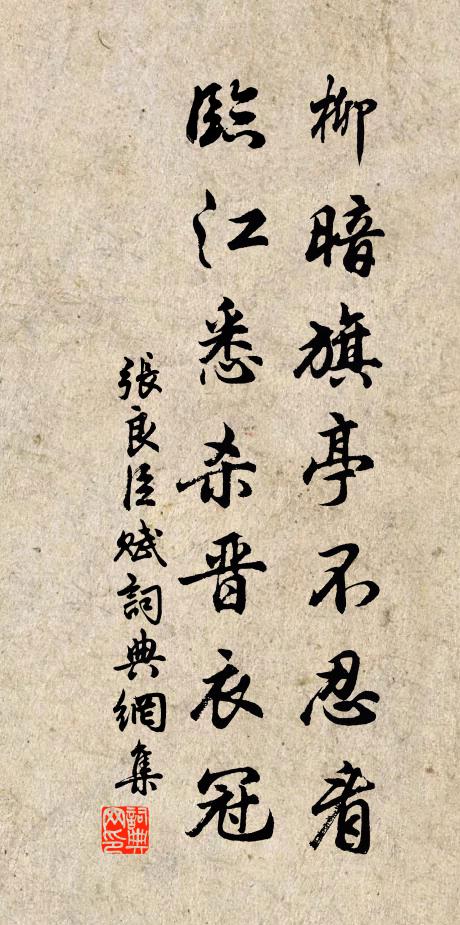 柳暗旗亭不忍看
臨江悉杀晋衣冠
張良臣賦詞典網集
詞典网印